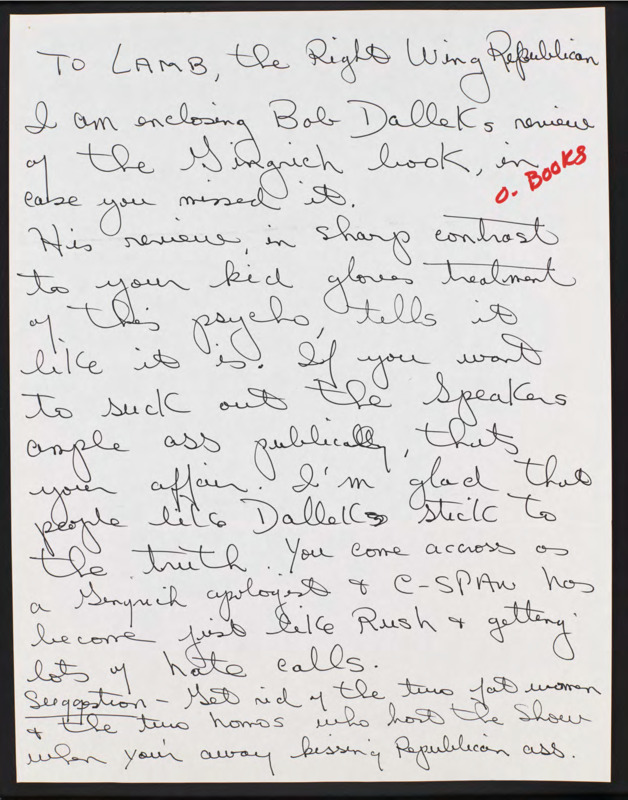 TO LAMB, the Right Wing Republican
I am enclosing Bob Dalleks review
of the Gingrich book, in
O. BOOKS
case you missed it.
His review, in sharp contrast
to your kid gloves treatment
of this psycho, tells it
like it is. If you want
to suck out the Speakers
ample ass publically, thats
your affair. I'm glad that
people like Dalleks stick to
the truth. You come accross as
a Gingrich apologist & C-SPAN has
become just like Rush & getting
lots of hate calls.
Suggestion - Get rid of the two fat women
& the two homos who host the show
when your away kissing Republican ass.